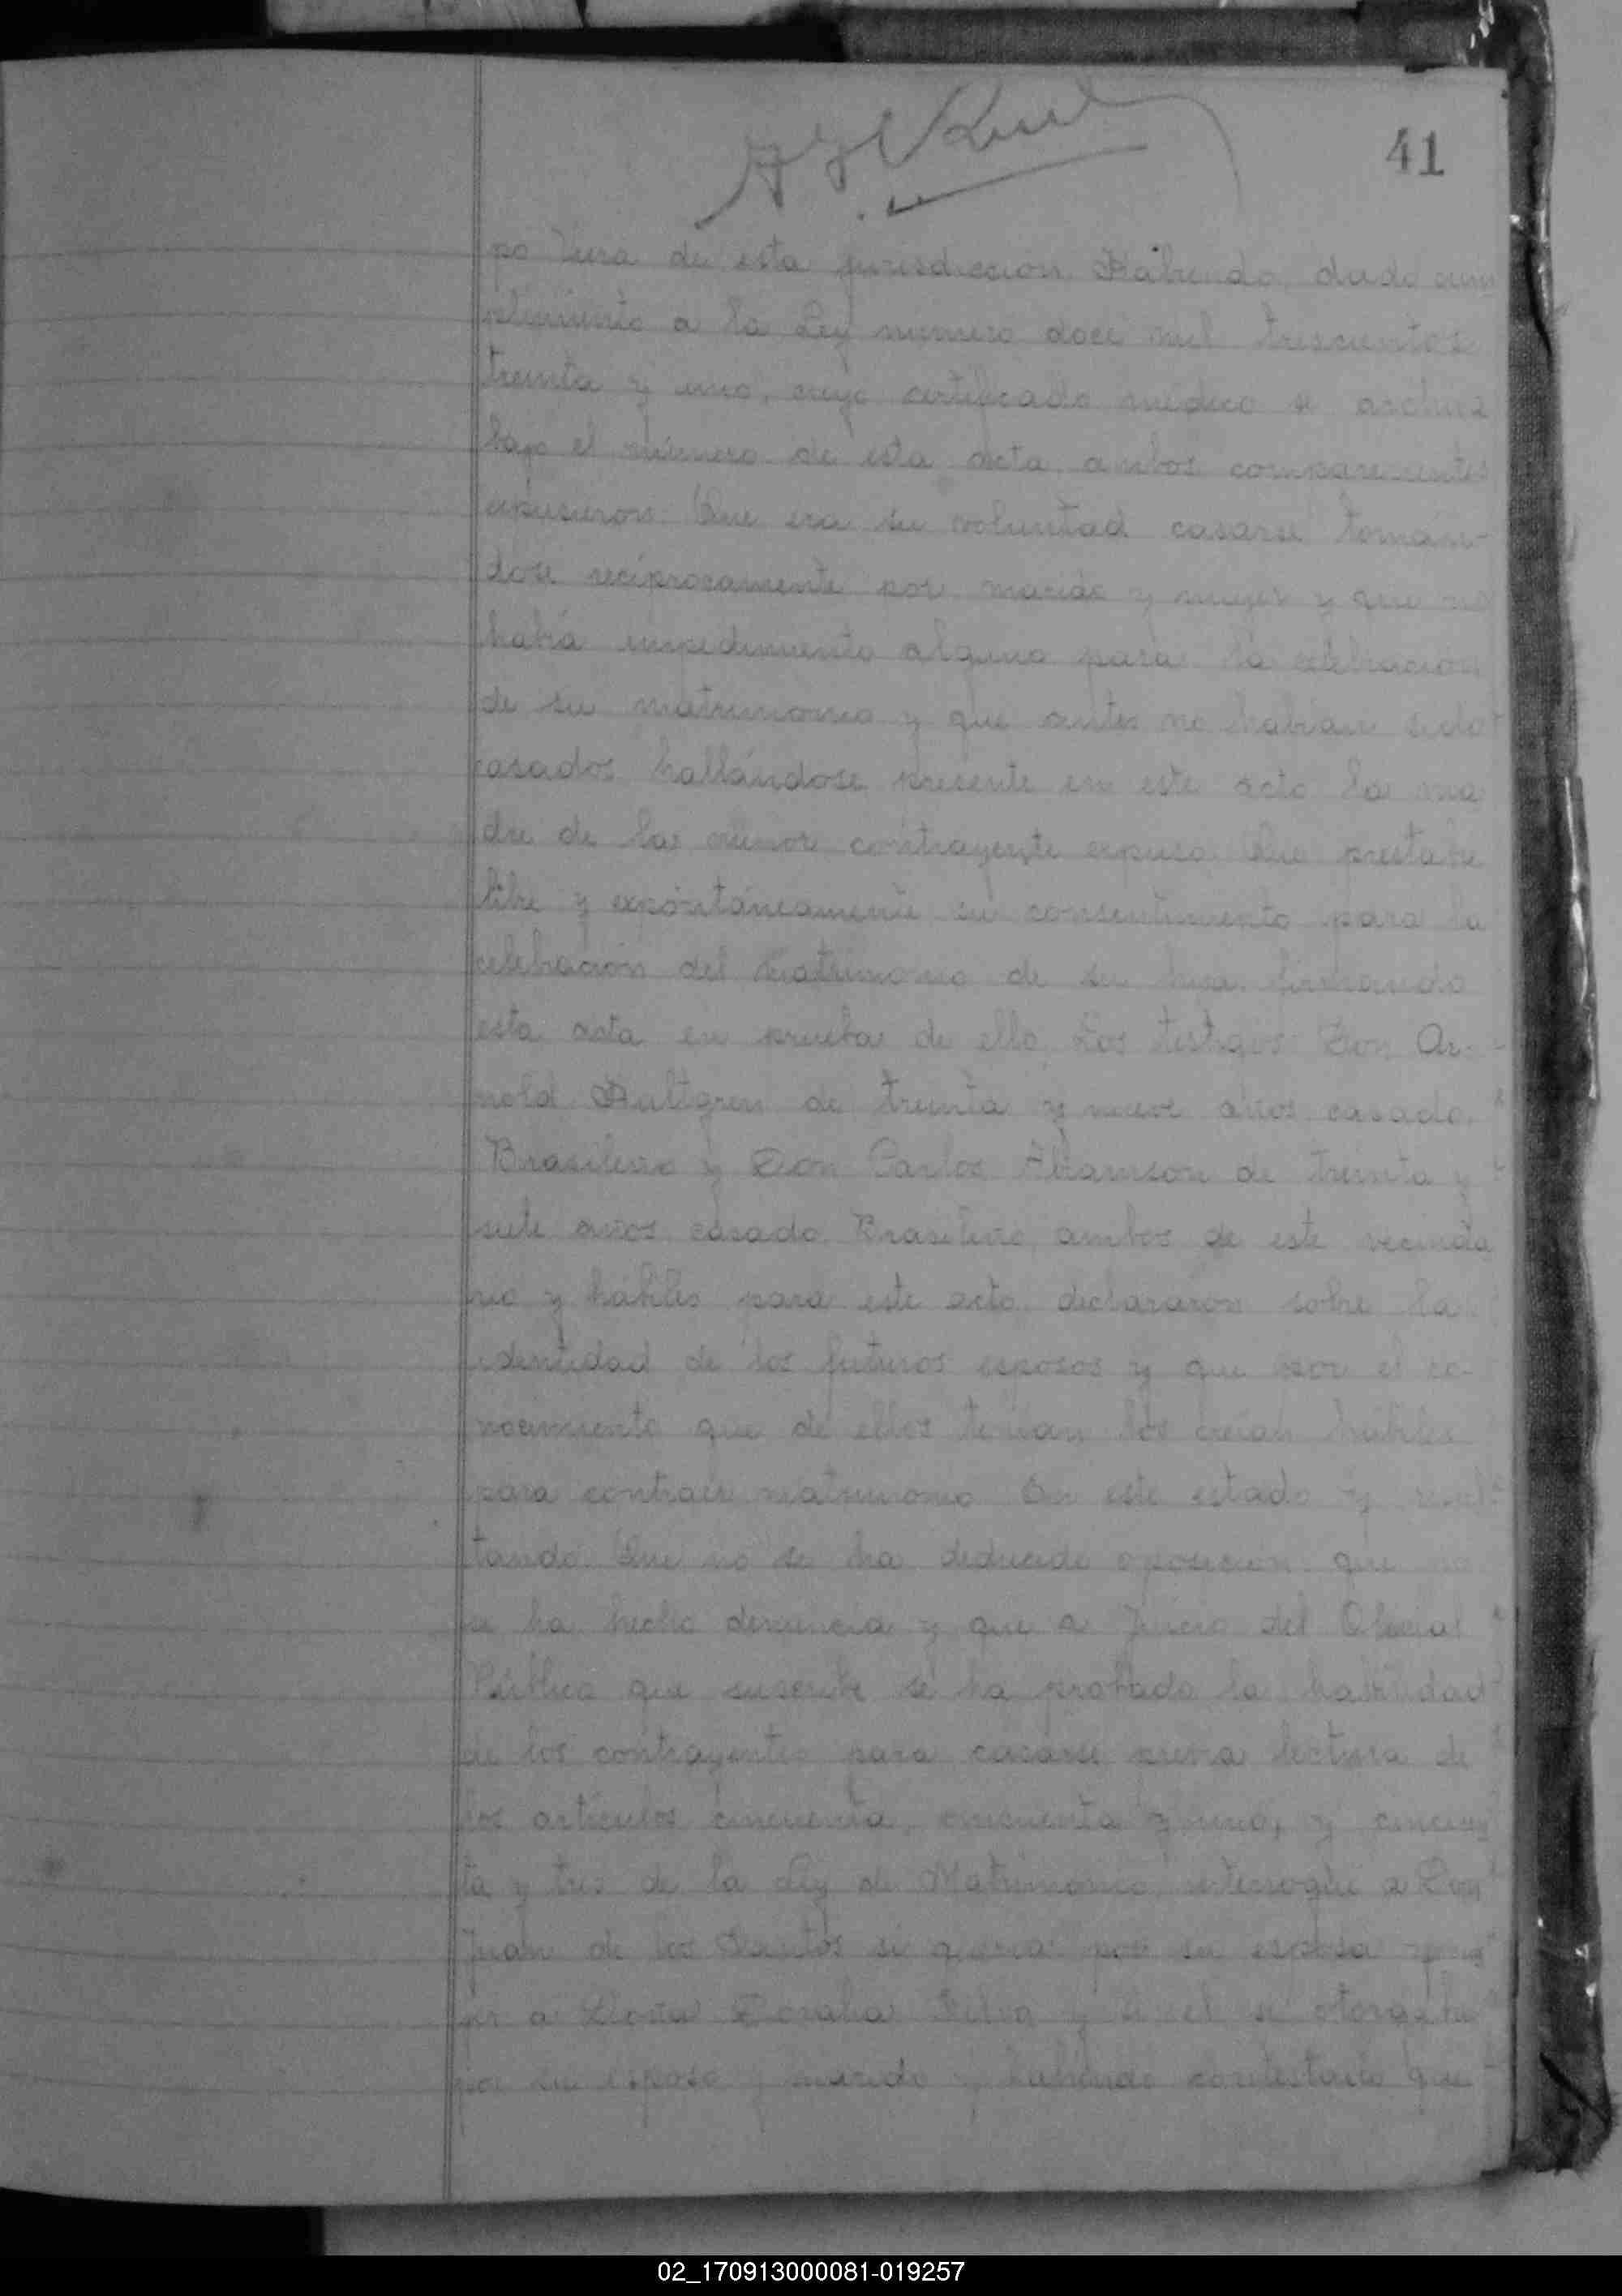 41
po Vera de esta jurisdicción Habiendo dado cum
plimiento a la Ley número doce mil trescientos
treinta y uno, cuyo certificado médico se archiva
bajo el número de esta acta ambos comparecientes
expusieron Que era su voluntad casarse tomán-
dose recíprocamente por marido y mujer y que no
había impedimento alguno para la celebración
de su matrimonio y que antes no habían sido
casados hallándose presente en este acto la ma
dre de la menor contrayente expuso Que prestaba
libre y expontáneamente su consentimiento para la
celebración del matrimonio de su hija firmando
esta acta en prueba de ello Los testigos Don Ar-
nold Hultgren de treinta y nueve años casado
Brasilero y Don Carlos Abramson de treinta y
siete años casado Brasilero ambos de este vecinda
rio y hábiles para este acto declararon sobre la
identidad de los futuros esposos y que por el co-
nocimiento que de ellos tenían los creían hábiles
para contraer matrimonio En este estado y resul-
tando Que no se ha deducido oposición que no
se ha hecho denuncia y que a Juicio del Oficial
Público que suscribe se ha probado la habilidad
de los contrayentes para casarse previa lectura de
los artículos cincuenta, cincuenta y uno, y cincuen
ta y tres de la Ley de Matrimonio interrogué a Don
Juan de los Santos si quería por su esposa y muj
er a Doña Silva y si él se otorgaba
por su esposo y marido y habiendo contestado que
02_170913000081-019257